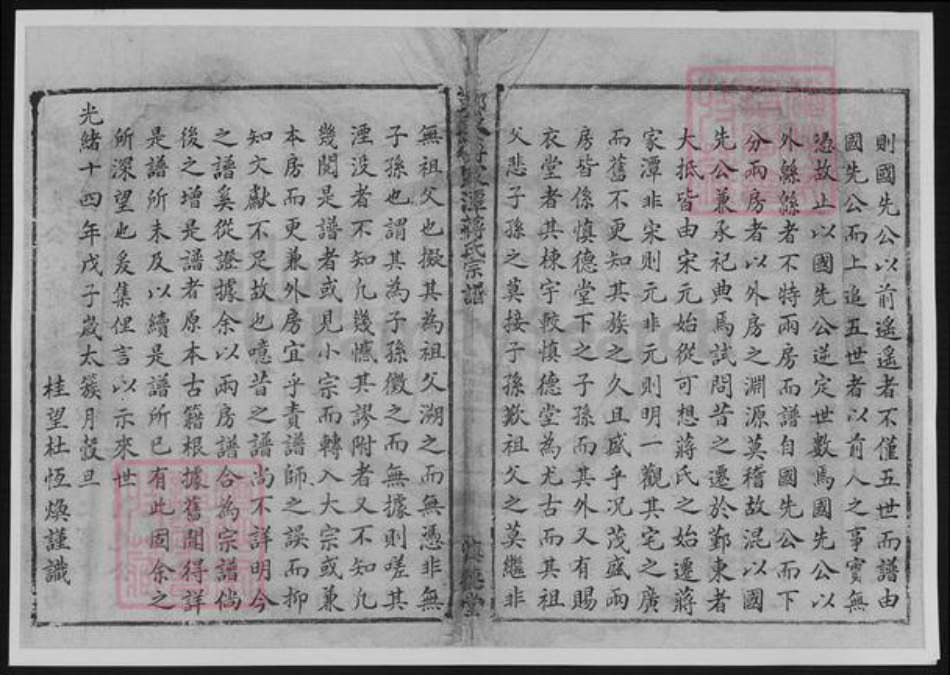 則國先公以前遙遙者不僅五世而譜由
國先公而上追五世者以前人之事實無
憑故止以國先公逆定世數焉國先公以
外緜緜者不特兩房而譜自國先公而下
分兩房者以外房之淵源莫稽故混以國
先公兼承祀典焉試問昔之遷於鄞東者
大抵皆由宋元始從可想蔣氏之始遷蔣
家潭非宋則元非元則明一觀其宅之廣
而舊不更知其族之久且盛乎况茂盛兩
房皆係慎德堂下之子孫而其外又有賜
衣堂者其棟宇較慎德堂為尤古而其祖
父悲子孫之莫接子孫歎祖父之莫繼非
家潭蔣氏宗譜
德堂
無祖父也擬其為祖父溯之而無憑非無
子孫也謂其為子孫徵之而無據則嗟其
湮没者不知凡幾憾其謬附者又不知凡
幾閱是譜者或見小宗而轉入大宗或兼
本房而更兼外房宜乎責譜師之誤而抑
知文獻不足故也噫昔之譜尚不詳明今
之譜奚從證據余以兩房譜合為宗譜倘
後之增是譜者原本古籍根據舊聞得詳
是譜所未及以續是譜所已有此固余之
所深望也爰集俚言以示來世
光緒十四年戊子嵗太簇月穀旦
桂望杜恆煥謹識